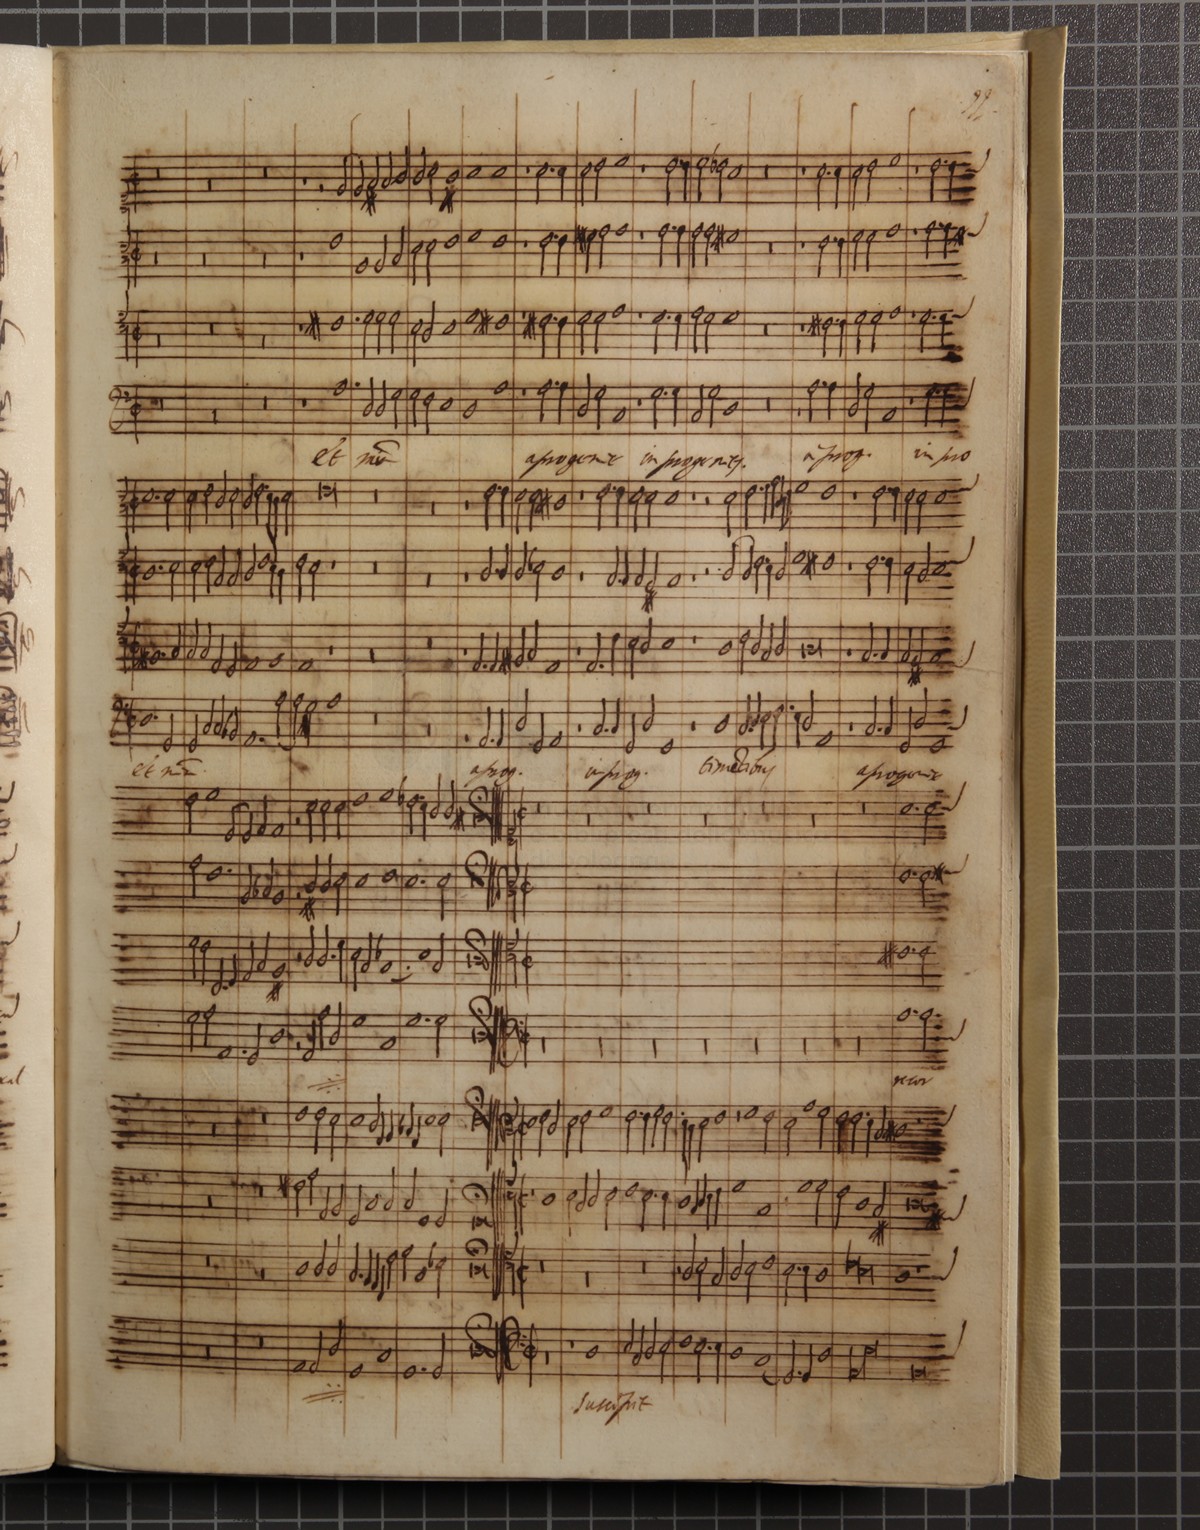 99
et mīā aprogenie in progenies. a prog. in pro
et mīā aprog. in prog. timentibus aprogenie
recor
Suscepit